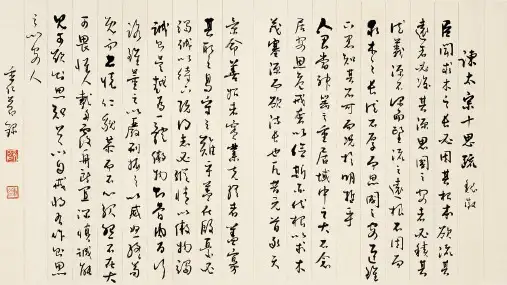 諫太宗十思疏 魏徵
臣聞求木之長者必固其根本欲流其
遠者必浚其源思國之安者必積其
德義源不深而望流之遠根不固而
求木之長德不厚而思國之安臣雖
下愚知其不可而況於明哲乎
人君當神器之重居域中之大不念
居安思危戒奢以儉斯亦伐根以求木
茂塞源而欲流長也凡昔元首承天
景命善始者實繁克終者蓋寡
豈取之易守之難乎蓋在殷憂必
竭誠以待下既得志必縱情以傲物竭
誠則吳越為一體傲物則骨肉為行
路雖董之以嚴刑振之以威怒終苟
免而不懷仁貌恭而不心服怨不在大
可畏惟人載舟覆舟所宜深慎誠能
見可欲則思知足以自戒將有作則思
止以安人